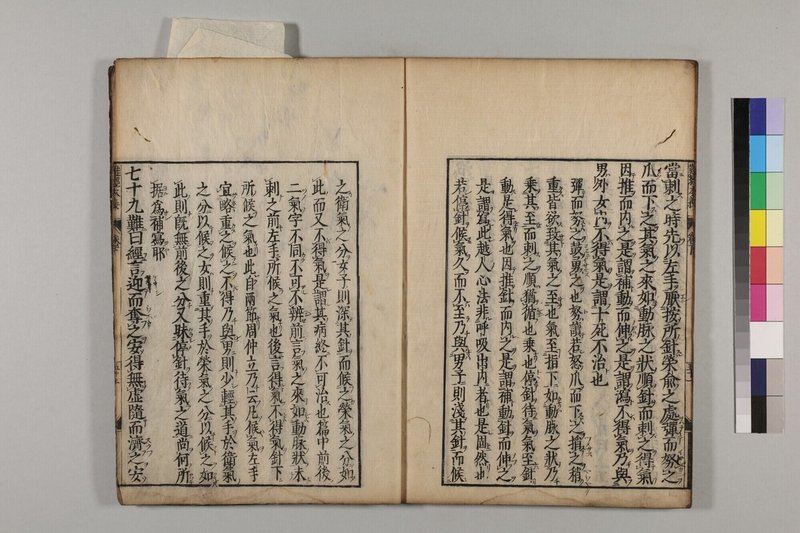 當刺之時先以左手厭按所針榮俞之處彈而努之
爪而下之其氣之來如動脉之狀順針而刺之得氣
因推而内之是謂補動而伸之是謂瀉不得氣乃與
男外女内不得氣是謂十死不治也
彈而努之鼓勇之也努讀若怒爪而下之掐之稍
重皆欲致其氣之至也氣至指下如動脉之狀乃
乘其至而刺之順猶循也乗也停針待氣氣至針
動是得氣也因推針而内之是謂補動針而伸之
是謂瀉此越人心法非呼吸出内者也是固然也
若停針候氣久而不至乃與男子則淺其針而候
之衛氣之分女子則深其針而候之榮氣之分如
此而又不得氣是謂其病終不可治也篇中前後
二氣字不同不可不辨前言氣之來如動脉狀未
刺之前左手所候之氣也後言得氣不得氣針下
所候之氣也此自兩節周仲立乃云凡候氣左手
宜略重之候之不得乃與男則少輕其手於衛氣
之分以候之女則重其手於榮氣之分以候之如
此則既無前後之分又昧停針待氣之道尚何所
據爲補瀉耶
七十九難曰經言迎而奪之安得無虚隨而濟之安